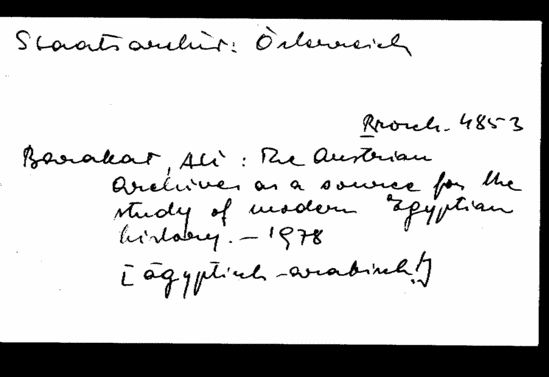 Staatsarchiv: Österreich
Brosch. 4853
Barakat, Ali: The Austrian
Archives as a source for the
study of modern Egyptian
history. – 1978
[ägyptisch-arabisch!]